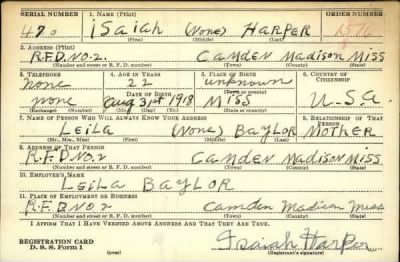 SERIAL NUMBER 1. NAME (Print) ORDER NUMBER
470 iSaiah (None) HARPER
(First) (Middle) (Last)
2. ADDRESS (Print)
R.F.D. No. 2. Camden Madison Miss
(Number and street or R. F. D. number) (Town) (County) (State)
3. TELEPHONE 4. AGE IN YEARS 5. PLACE OF BIRTH 6. COUNTRY OF CITIZENSHIP
none 22 unknown
DATE OF BIRTH (Town or county)
none Aug 31st 1918 Miss U.S.a.
(Exchange) (Number) (Mo.) (Day) (Yr.) (State or country)
7. NAME OF PERSON WHO WILL ALWAYS KNOW YOUR ADDRESS 8. RELATIONSHIP OF THAT PERSON
LEILA (None) BAYLOR MOTHER
(Mr., Mrs., Miss) (First) (Middle) (Last)
9. ADDRESS OF THAT PERSON
R.F.D. No. 2 Camden Madison Miss.
(Number and street or R. F. D. number) (Town) (County) (State)
10. EMPLOYER'S NAME
LEiLA BAYLOR
11. PLACE OF EMPLOYMENT OR BUSINESS
R.F.D. No. 2 Camden Madison Miss
(Number and street or R. F. D. number) (Town) (County) (State)
I AFFIRM THAT I HAVE VERIFIED ABOVE ANSWERS AND THAT THEY ARE TRUE.
REGISTRATION CARD Isaiah Harper
D. S. S. FORM 1 (over) (Registrant's signature)